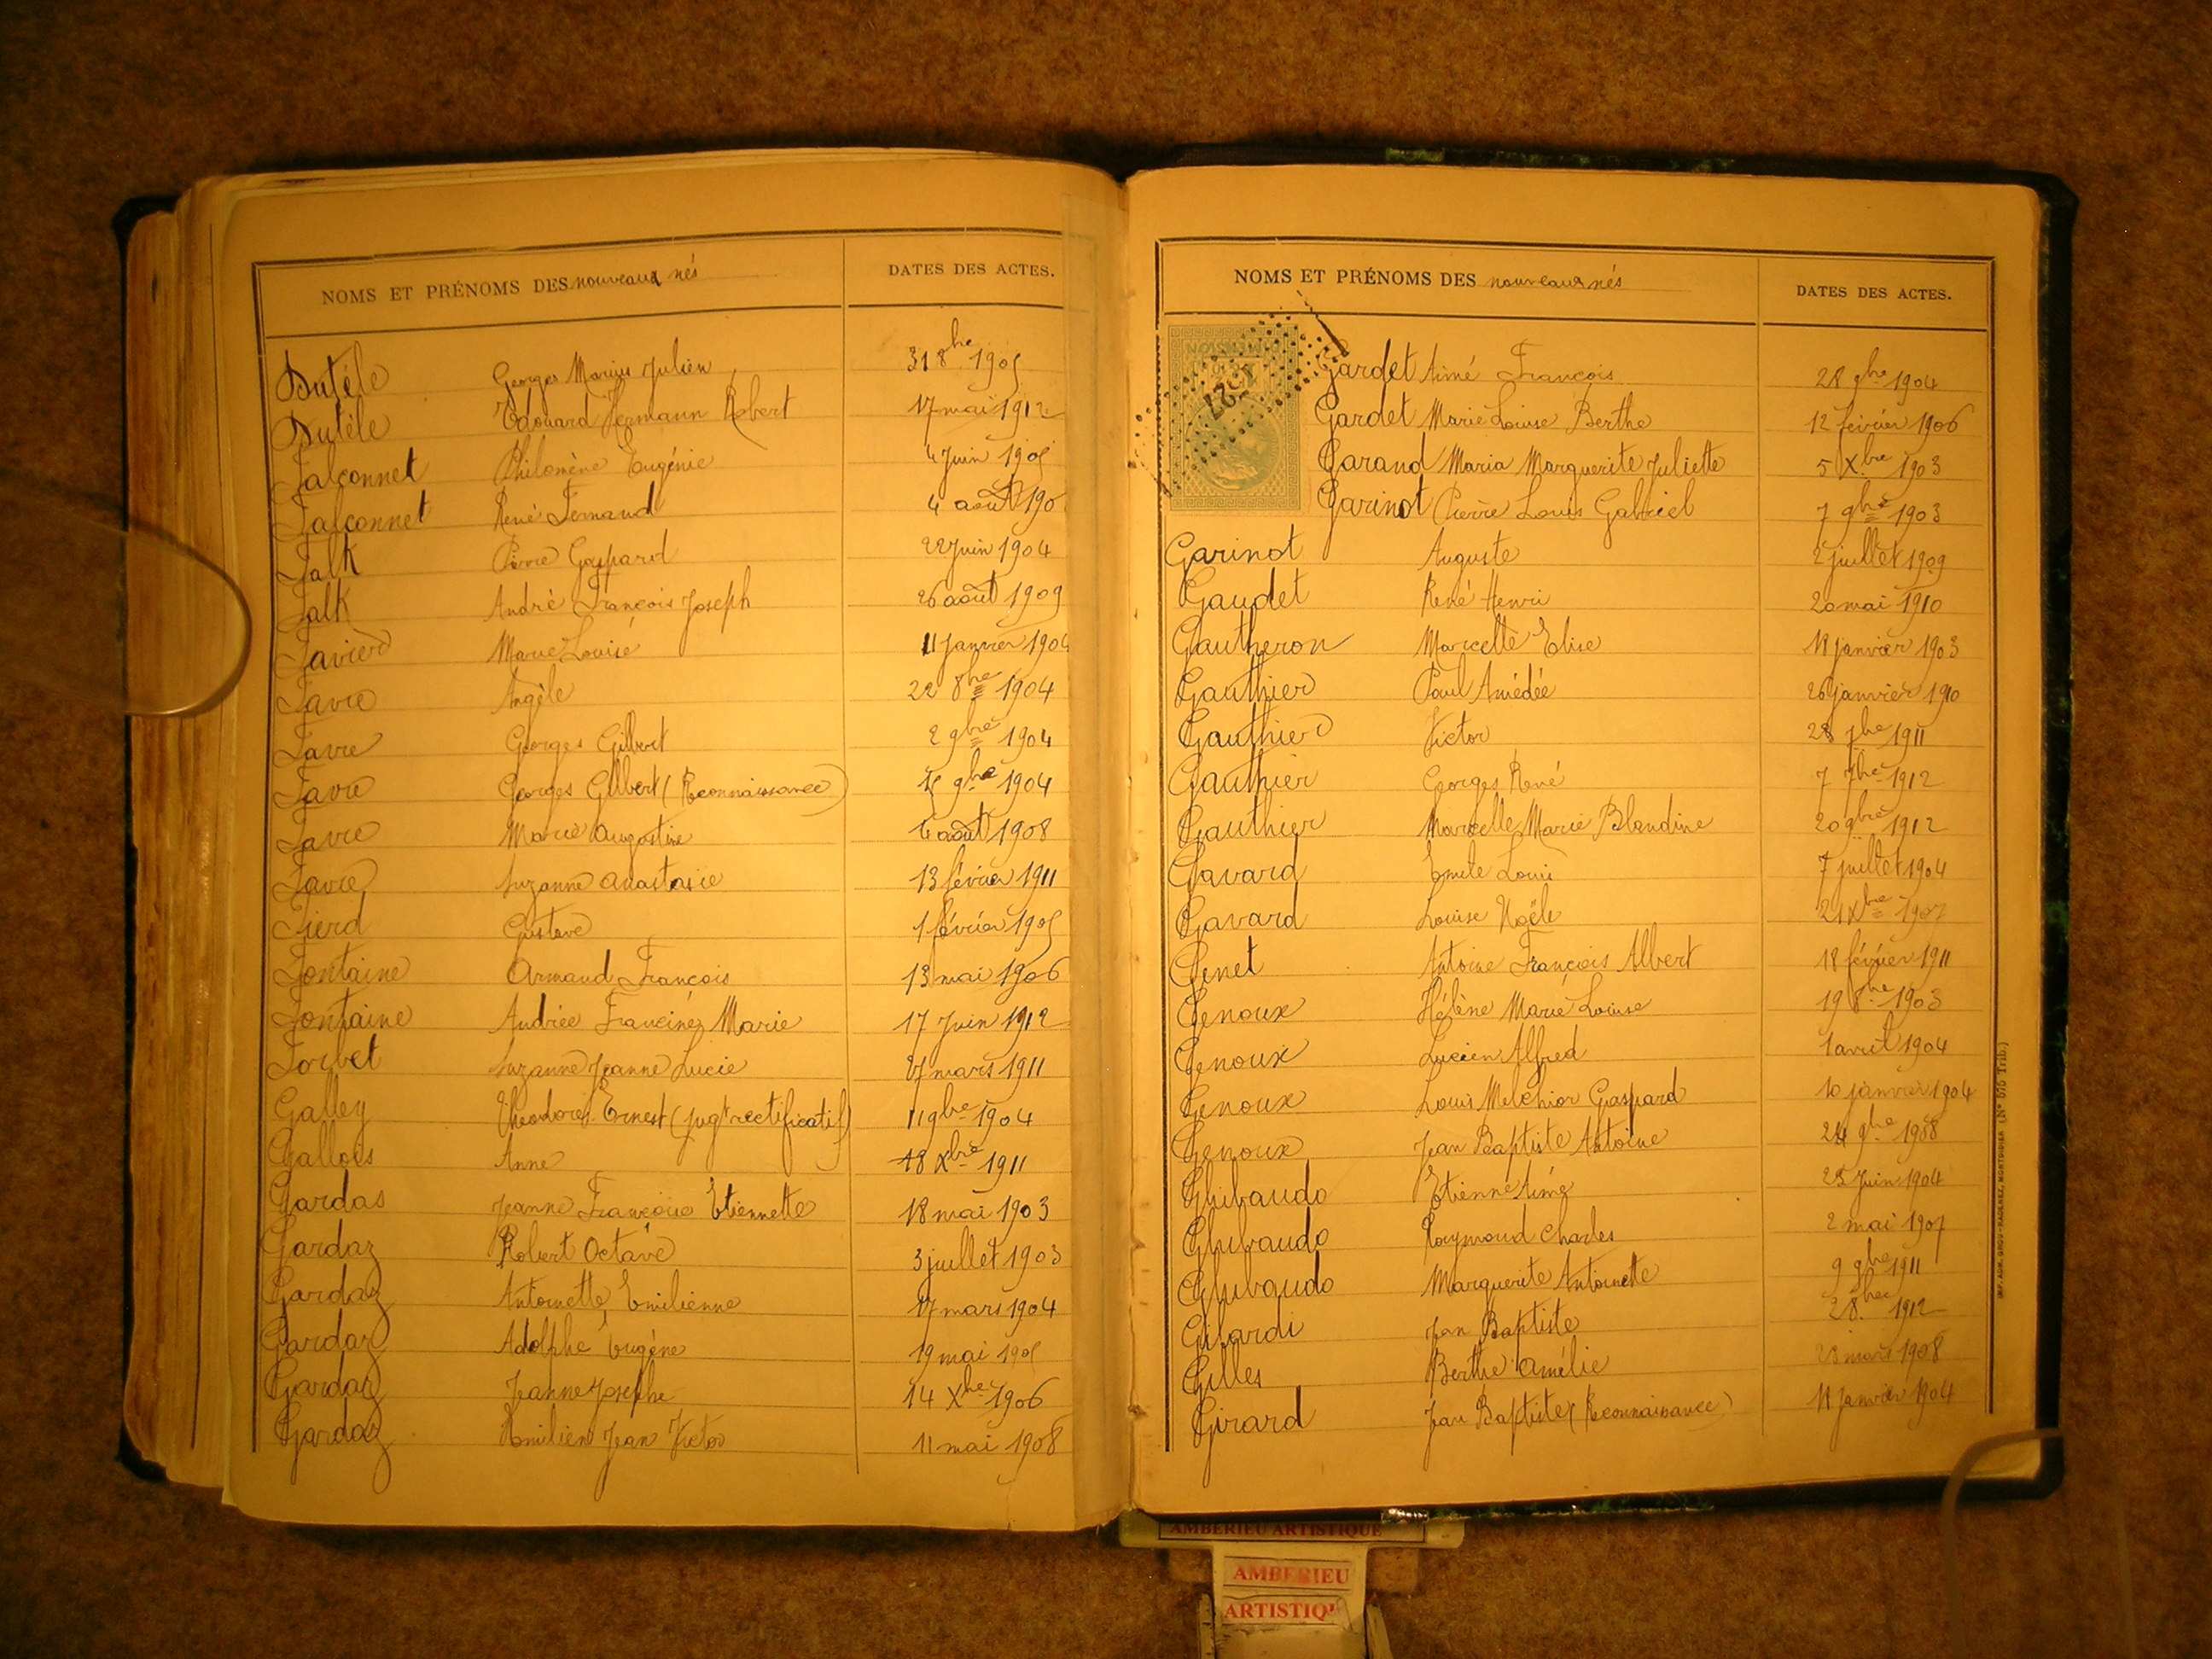 NOMS ET PRÉNOMS DES nouveaux nés DATES DES ACTES.
Dutéle Georges Marius Julien 31 8bre 1905
Dutéle Edouard Hermann Robert 17 mai 1912
Falconnet Philomène Eugénie 4 Juin 1905
Falconnet René Fernand 4 août 190
Falk Pierre Gaspard 22 Juin 1904
Falk André François Joseph 26 août 1909
Favier Marie Louise 11 Janvier 1904
Favre Angèle 22 8bre 1904
Favre Georges Gilbert 2 9bre 1904
Favre Georges Gilbert (Reconnaissance) 15 9bre 1904
Favre Marie Augustine août 1908
Favre Suzanne Anastasie 13 février 1911
Fierd Gustave 1 février 1905
Fontaine Armand François 13 mai 1906
Fontaine Andrée Francine Marie 17 Juin 1912
Forbet Suzanne Jeanne Lucie mars 1911
Galley Théodore Ernest (jugt rectificatif) 11 9bre 1904
Gallois Anne 18 Xbre 1911
Gardas Jeanne Françoise Etiennette 18 mai 1903
Gardaz Robert Octave 3 juillet 1903
Gardaz Antoinette Emilienne 17 mars 1904
Gardaz Adolphe Eugéne 19 mai 1905
Gardaz Jeanne Josephe 14 Xbre 1906
Gardaz Emilien Jean Victor 11 mai 1908
NOMS ET PRÉNOMS DES nouveaux nés DATES DES ACTES.
Gardet Aimé François 28 9bre 1904
Gardet Marie Louise Berthe 12 février 1906
Garand Maria Marguerite Juliette 5 Xbre 1903
Garinot Pierre Louis Gabriel 7 9bre 1903
Garinot Auguste 2 juillet 1909
Gaudet René Henri 20 mai 1910
Gautheron Marcelle Elise 11 janvier 1903
Gauthier Paul Amédée 26 janvier 1910
Gauthier Victor 28 7bre 1911
Gauthier Georges René 7 7bre 1912
Gauthier Marcelle Marie Blandine 20 9bre 1912
Gavard Emile Louis 7 juillet 1904
Gavard Louise Noële 21 Xbre 1907
Genet Antoine François Albert 18 février 1911
Genoux Hélène Marie Louise 19 8bre 1903
Genoux Lucien Alfred 1 avril 1904
Genoux Louis Melchior Gaspard 10 janvier 1904
Genoux Jean Baptiste Antoine 24 9bre 1908
Ghibaudo Etienne Aimé 25 Juin 1904
Ghibaudo Raymond Charles 2 mai 1907
Ghibaudo Marguerite Antoinette 9 9bre 1911
Gilardi Jean Baptiste 2 8bre 1912
Gilles Berthe Amélie 23 mars 1908
Girard Jean Baptiste (Reconnaissance) 11 Janvier 1904
AMBERIEU ARTISTIQUE
AMBERIEU
ARTISTIQU